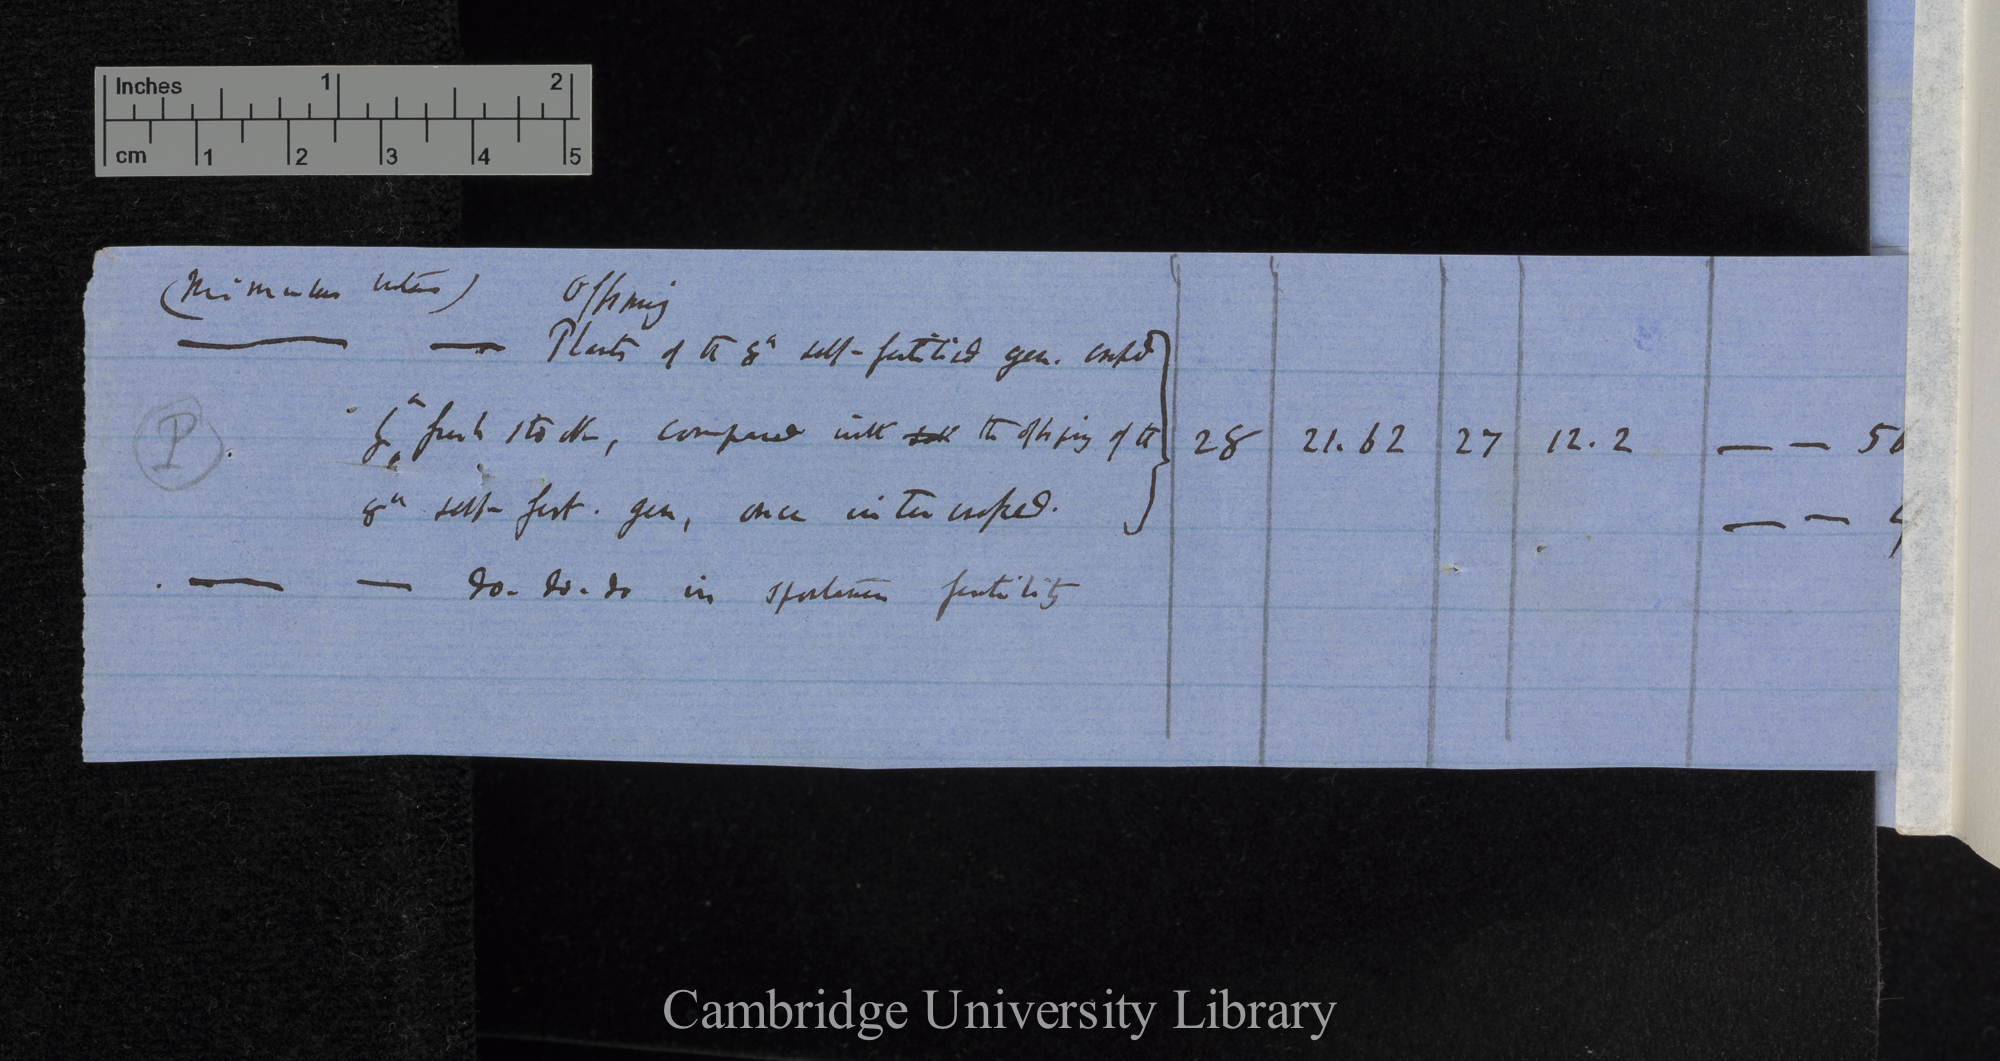 Inches 1 2
cm 1 2 3 4 5
(Mimulus luteus) Offspring
Plants of the 8th self-fertilised gen. crossed
P
by a fresh stock, compared with the offspring of the 28 21.62 27 12.2 — — 5
8th self-fert. gen, once intercrossed. — —
— — do. do. do in spontaneous fertility
Cambridge University Library